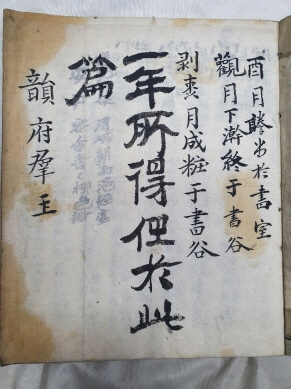 酉月謄出於書室
觀月下澣終于書谷
剥棗月成粧于書谷
一年所得但於此
篇
韻府羣玉